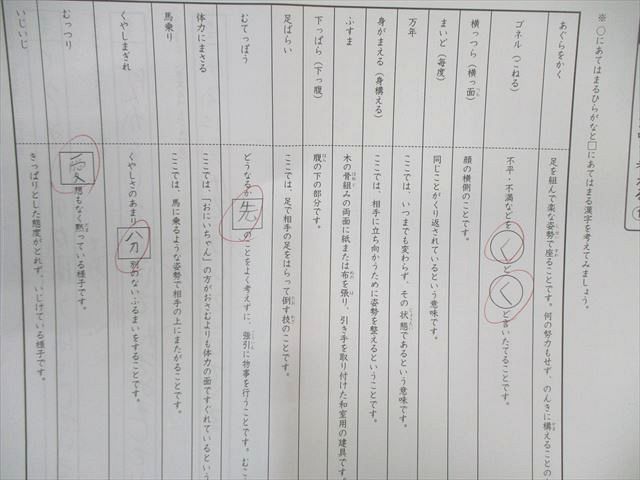 ※○にあてはまるひらがなと□にあてはまる漢字を考えてみましょう。
あぐらをかく
足を組んで楽な姿勢で座ることです。何の努力もせず、のんきに構えることの
ゴネル（こねる）
不平・不満などを く ど く ど言いたてることです。
横っつら（横っ面）
顔の横側のことです。
まいど（毎度）
同じことがくり返されているという意味です。
万年
ここでは、いつまでも変わらず、その状態であるという意味です。
身がまえる（身構える）
ここでは、相手に立ち向かうために姿勢を整えるということです。
ふすま
木の骨組みの両面に紙または布を張り、引き手を取り付けた和室用の建具です。
下っぱら（下っ腹）
腹の下の部分です。
足ばらい
ここでは、足で相手の足をはらって倒す技のことです。
むてっぽう
どうなるか 先 のことをよく考えずに、強引に物事を行うことです。むこ
体力にまさる
ここでは、「おにいちゃん」の方がおさむよりも体力の面ですぐれているという
馬乗り
ここでは、馬に乗るような姿勢で相手の上にまたがることです。
くやしまぎれ
くやしさのあまり 分 別のないふるまいをすることです。
むっつり
愛 想もなく黙っている様子です。
いじいじ
きっぱりとした態度がとれず、いじけている様子です。